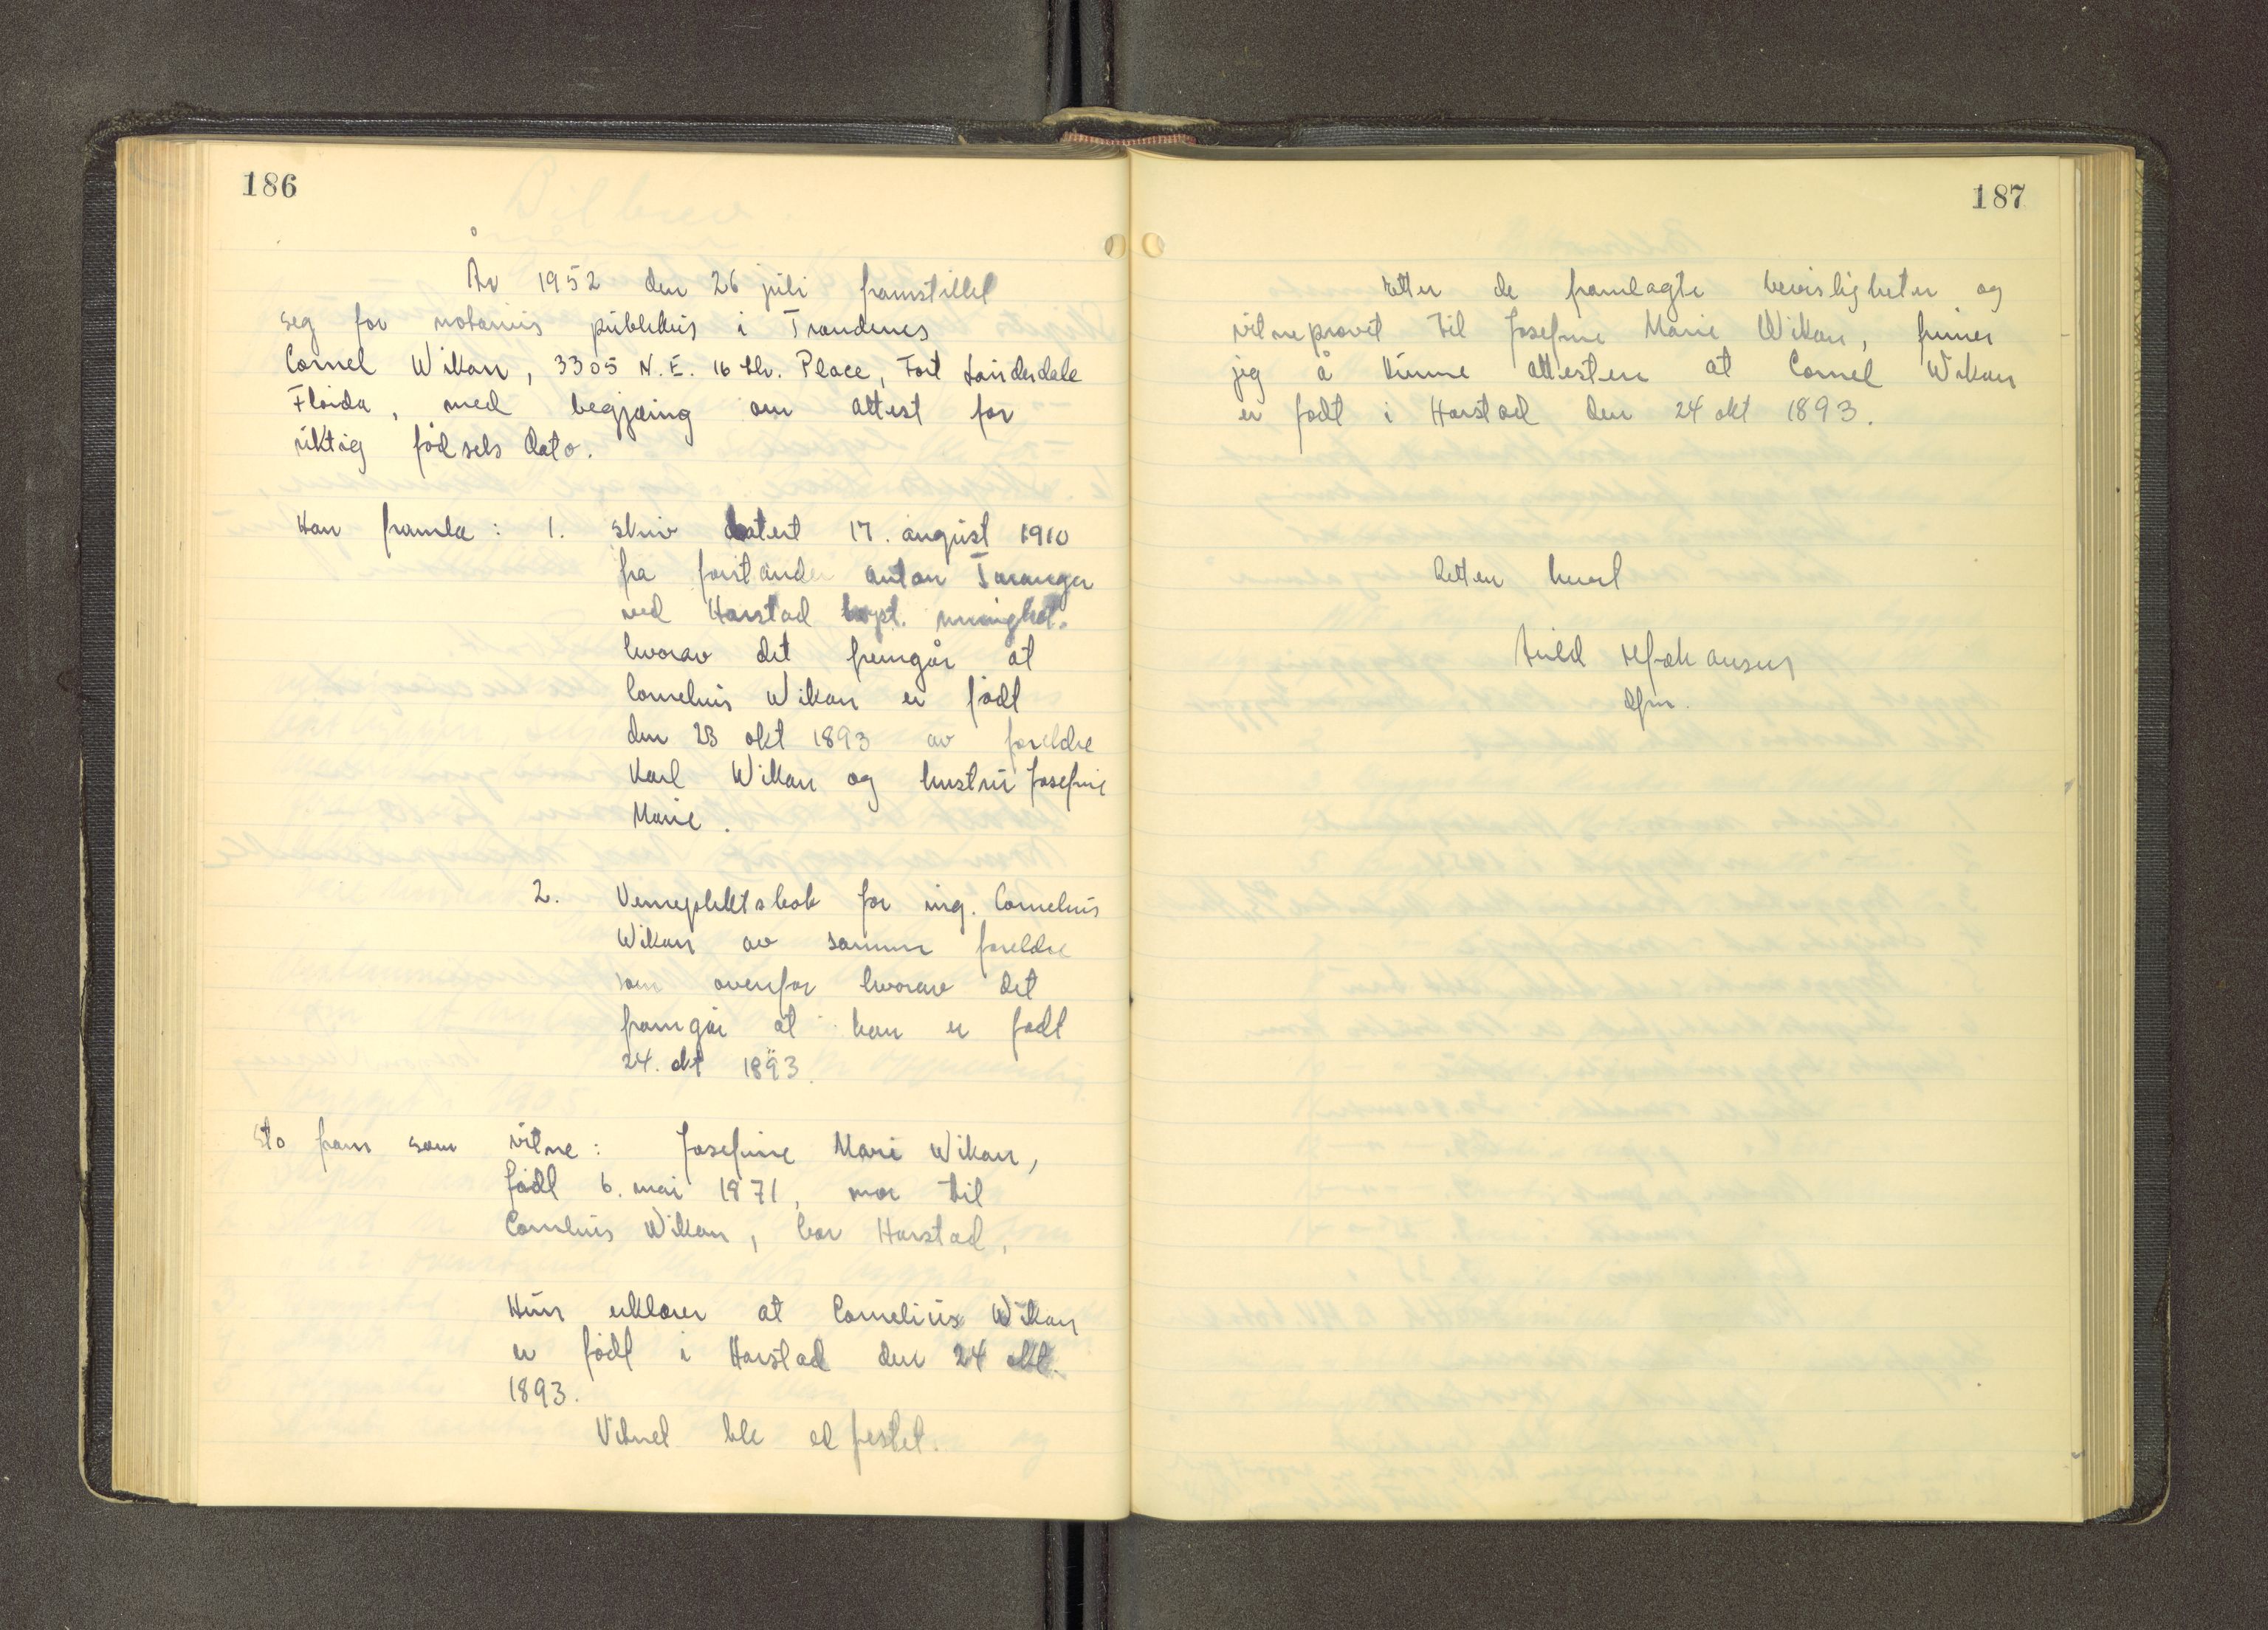 186
År 1952 den 26 juli framstillet
seg for notarius publikus i Trondenes
Cornel Wikan, 3305 N.E. 16 th. Place, Fort Lauderdale
Florida, med begjæring om attest for
riktig fødsels dato.
Han framla: 1. skriv datert 17. august 1910
fra forstander Anton Taranger
ved Harstad bapt. menighet.
hvorav det fremgår at
Cornelius Wikan er født
den 23 okt 1893 av foreldre
Karl Wikan og hustru Josefine
Marie.
2. Vernepliktsbok for ing. Cornelius
Wikan av samme foreldre
som ovenfor hvorav det
framgår at han er født
24. okt 1893.
Sto fram som vitne: Josefine Marie Wikan,
født 6. mai 1871, mor til
Cornelius Wikan, bor Harstad,
Hun erklærer at Cornelius Wikan
er født i Harstad den 24 okt.
1893.
Vitnet ble ed festet.
187
Etter de framlagte bevisligheter og
vitneprovet til Josefine Marie Wikan, finner
jeg å kunne attestere at Cornel Wikan
er født i Harstad den 24 okt 1893.
Retten hevet
dfm.